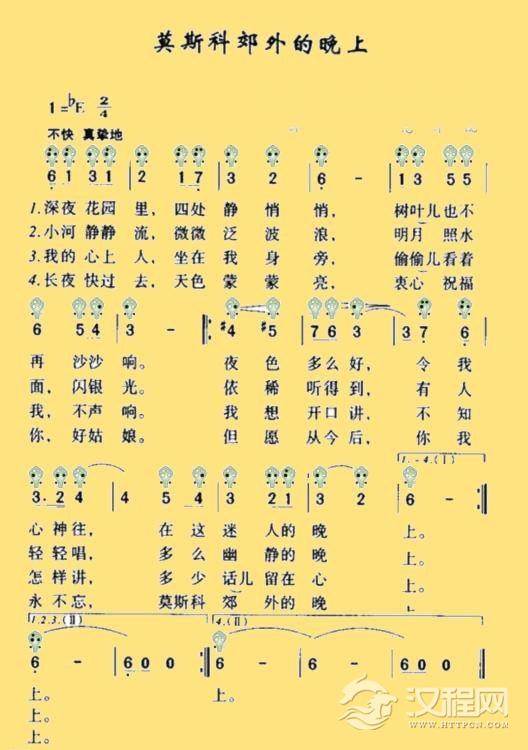 莫斯科郊外的晚上
1=♭E 2/4
不快 真挚地
6 1 3 1 | 2 1 7 | 3 2 | 6 - | 1 3 5 5
1.深夜花园里，四处静悄悄， 树叶儿也不
2.小河静静流，微微泛波浪， 明月照水
3.我的心上人，坐在我身旁， 偷偷儿看着
4.长夜快过去，天色蒙蒙亮， 衷心祝福
6 5 4 | 3 - :‖: #4 #5 | 7 6 3 | 3 7 6
再沙沙响。 夜色多么好，令我
面，闪银光。 依稀听得到，有人
我，不声响。 我想开口讲，不知
你，好姑娘。 但愿从今后，你我
1.-4.(Ⅰ)
3· 2 4 | 4 5 | 4 3 | 3 2 1 | 3 2 | 6 - :‖
心神往， 在这迷人的晚上。
轻轻唱， 多么幽静的晚上。
怎样讲， 多少话儿留在心上。
永不忘， 莫斯科郊外的晚上。
1.2.3.(Ⅱ) 4.(Ⅱ)
6 - | 6 0 0 :‖ 6 - | 6 0 0 ‖
上。 上。
上。
上。
汉程网
WWW.HTTPCN.COM